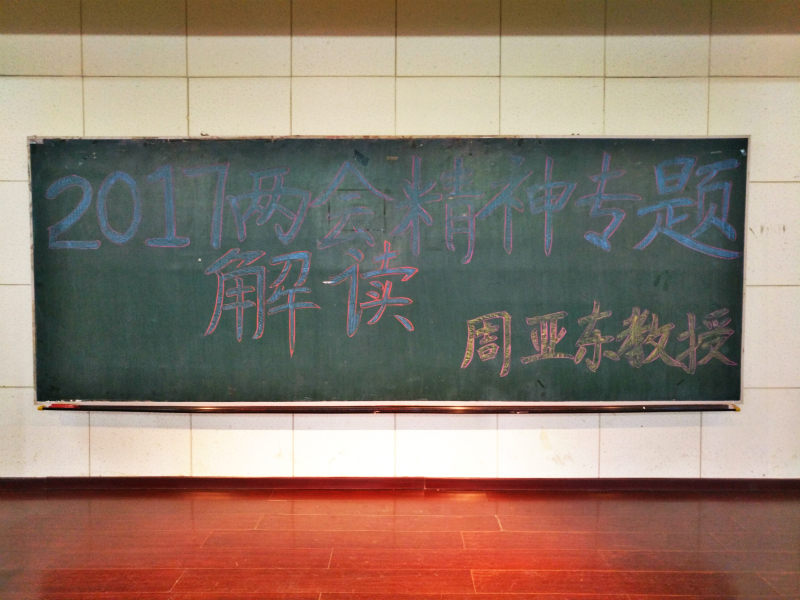 2017两会精神专题
解读
周亚东教授